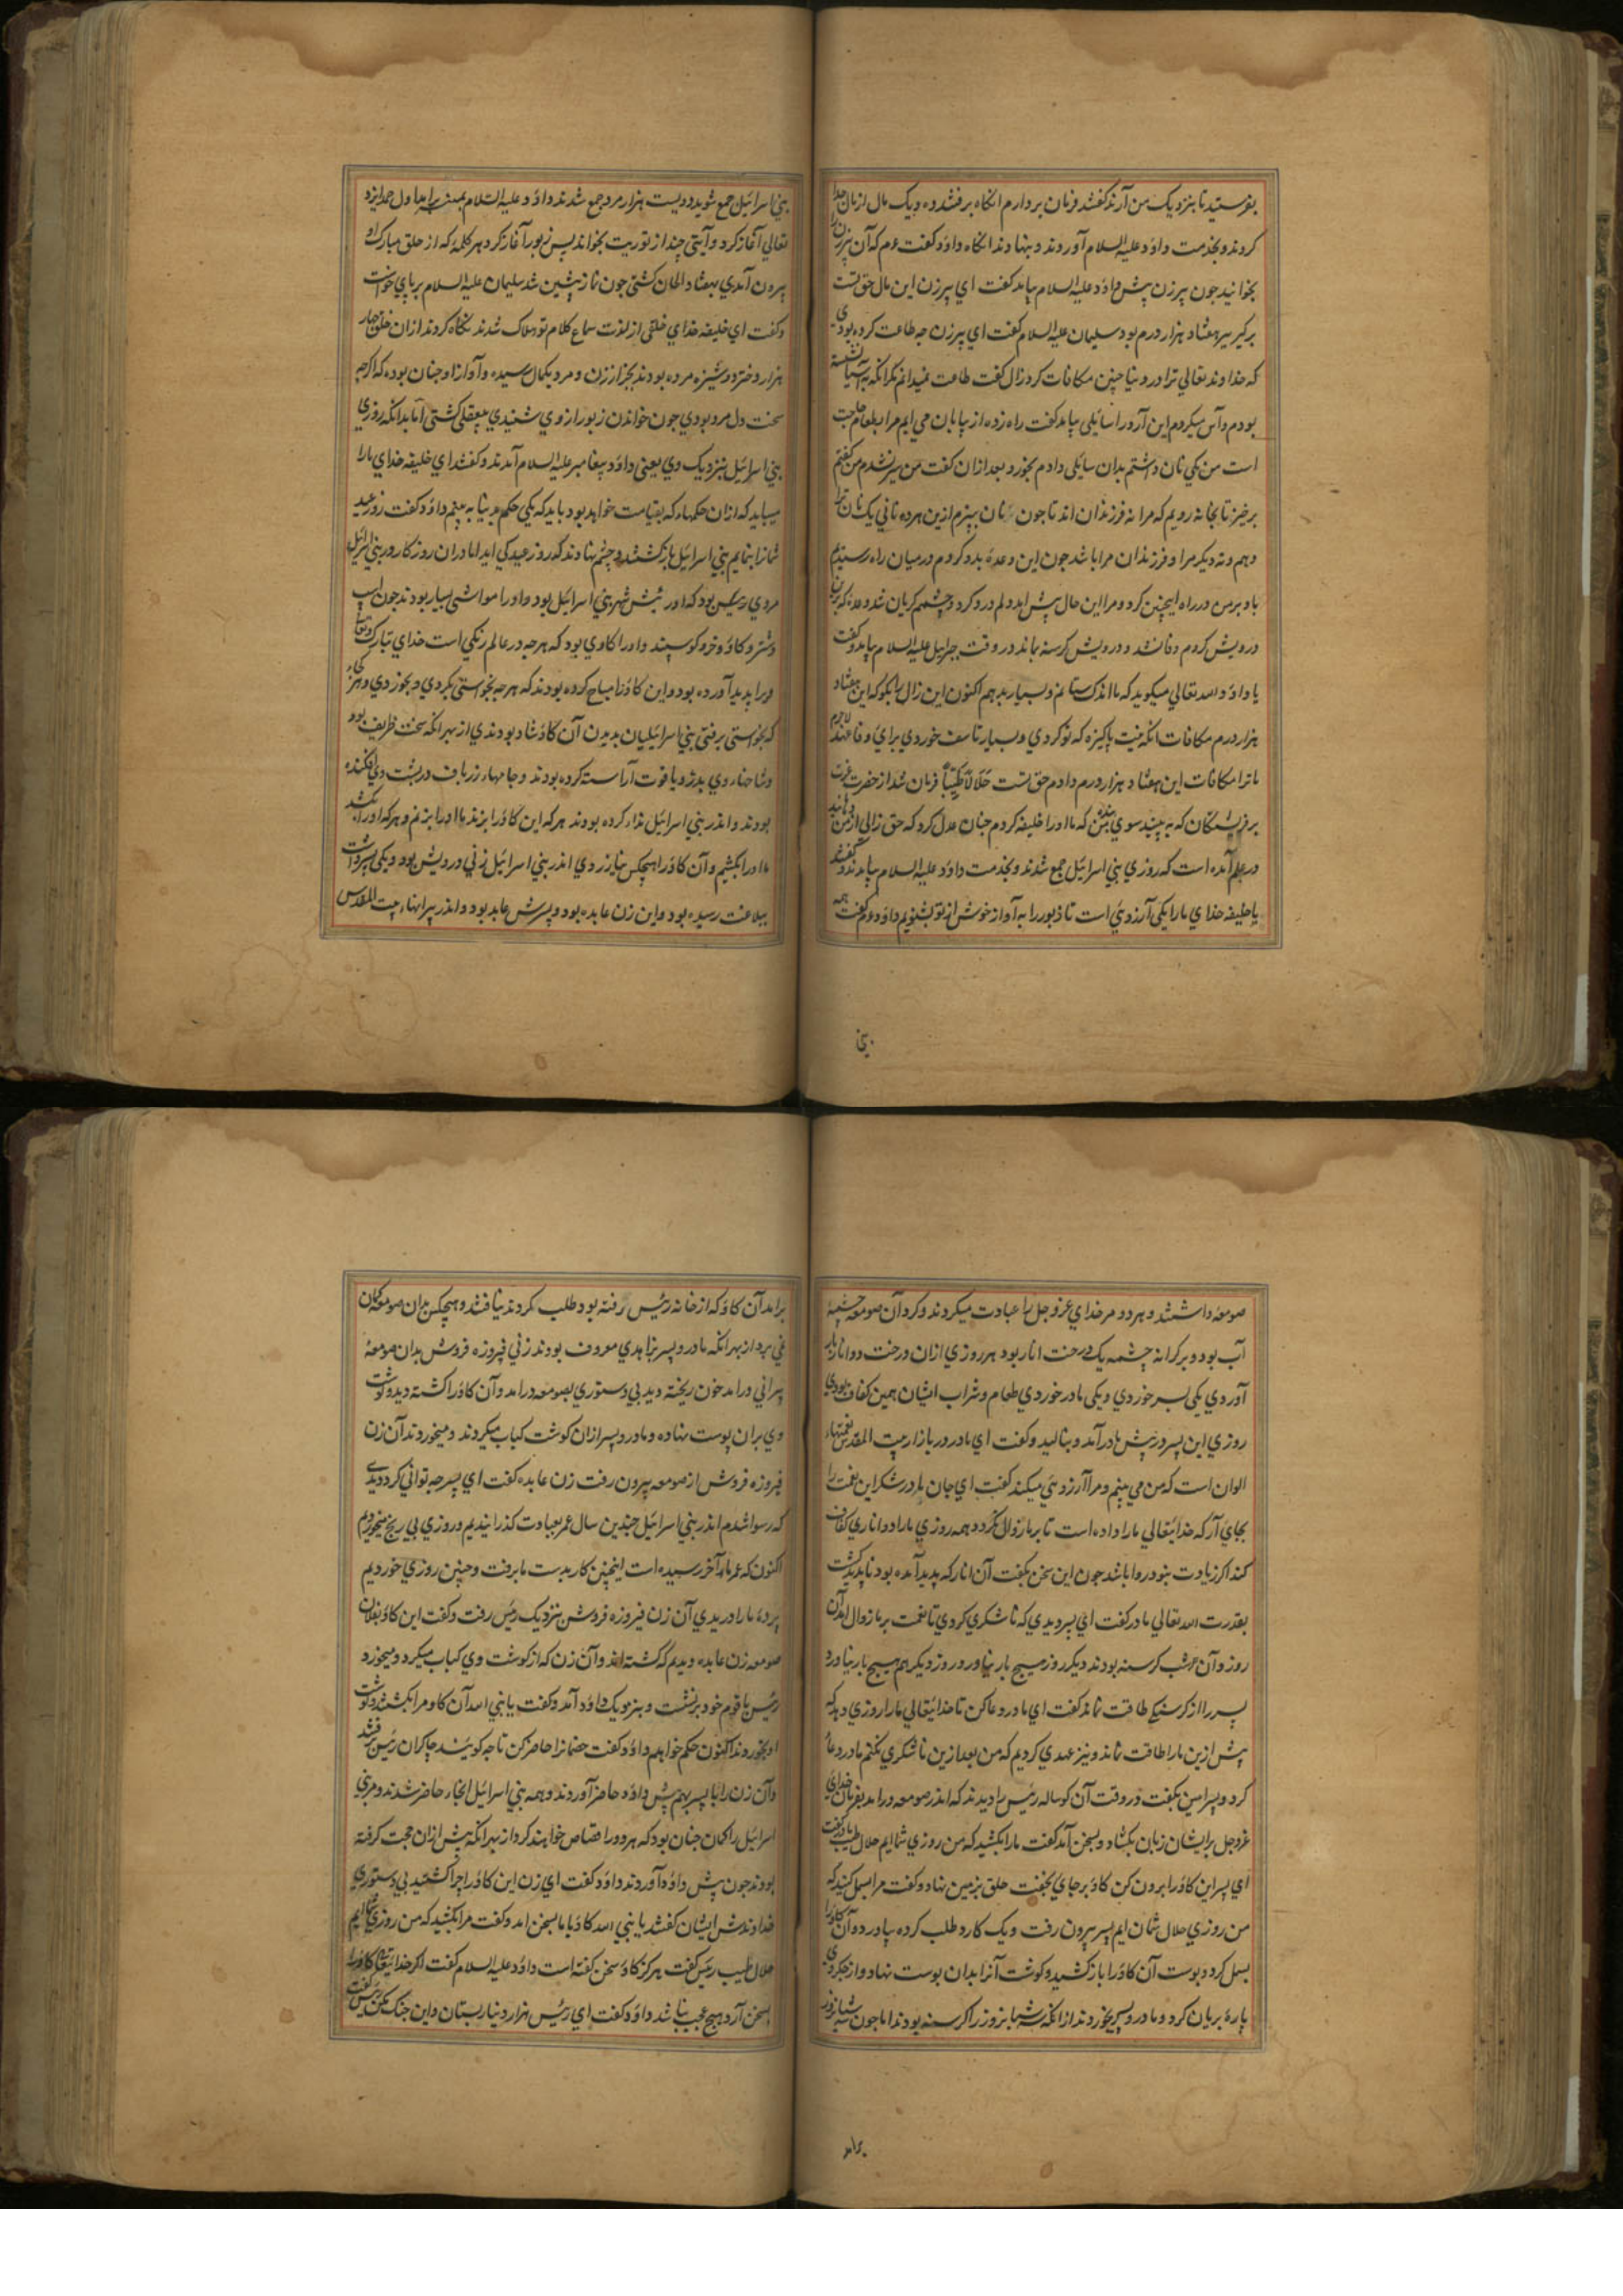 بفرستید تا بنزدیک من آرند کفتند فرمان بردارم انکاه برفتند و ده یک مال ازمان جدا
کردند و بخدمت داؤد علیه السلام آوردند و بنهادند انکاه داؤد کفت عم که آن پیرزن را
بخوانید جون پیر زن پیش داؤد علیه السلام بیامد کفت ای پیرزن این مال حق تست
برکیر سیر هفتاد هزار درم بود سلیمان علیه السلام کفت ای پیرزن جه طاعت کرده بودی
که خداوند تعالی ترا در دنیا جنین مکافات کرد زال کفت طاعت نمیدانم مکر انکه به آسیا نشسته
بودم و آس میکردم این آرد را سایلی بیامد کفت راه زده از بیابان می ایم مرا بطعام حاجت
است من یکی نان داشتم بدان سائلی دادم بخورد بعد ازان کفت من سیر نشدم من کفتم
برخیز تا بخانه رویم که مرا نه فرزندان اند تا جون نان بپزم ازین هر ده نانی یک نان ترا
دهم و نه دیکر مرا و فرزندان مرا باشد جون این وعده بدو کردم در میان راه رسیدیم
باد بر من در راه اینچنین کرد و مرا این حال پیش امد و لم درد کرد و چشمم کریان شد وعده که بران
درویش کردم وفا نشد و درویش کرسنه بماند در وقت جبرایل علیه السلام بیامد و کفت
یا داؤد الله تعالی میکوید که ما اندک ستانم و بسیار بدهم اکنون این زال را بکو که این هفتاد
هزار درم مکافات انکه نیت پاکیزه که تو کردی و بسیار تاسف خوردی برای وفا عهد لاجرم
ما ترا مکافات این هفتاد هزار درم دادم حق تست حَلَالاً طَیِّباً فرمان شد از حضرت عزت
بر فرشتکان که به بینید سوی بنده من که ما او را خلیفه کردم جنان عدل کرد که حق زالی از من دهانید
در علم آمده است که روزی بنی اسرائیل جمع شدند و بخدمت داؤد علیه السلام بیامدند و کفتند
یا خلیفه خدای ما را یکی آرزوئ است تا زبور را به آواز خوش از تو بشنویم داؤد عم کفت همه
بنی
بنی اسرائیل جمع شوید دویست هزار مرد جمع شدند داؤد علیه السلام بمنبر برامد اول حمد ایزد
تعالی آغاز کرد و آیتی چند از توریت بخواند پس زبور آغاز کرد هر کلمۀ که از حلق مبارک او
بیرون آمدی بهفتاد الحان کشتی جون نماز پیشین شد سلیمان علیه السلام بر پای خواست
و کفت ای خلیفه خدای خلقی از لذت سماع کلام تو هلاک شدند نکاه کردند ازان خلق چهار
هزار دختر دوشیزه مرده بودند بجز از زن و مرد بکمال رسیده و آواز او جنان بوده که اکرجه
سخت دل مرد بودی جون خواندن زبور از وی شنیدی بیعقل کشتی اما بدانکه روزی
بنی اسرائیل بنزدیک وی یعنی داؤد پیغامبر علیه السلام آمدند و کفتند ای خلیفه خدای ما را
میباید که ازان حکمهاء که بقیامت خواهد بود باید که یکی حکم بدنیا به بینم داؤد کفت روز عید
شما را بنمایم بنی اسرائیل بازکشتند و چشم نهادند که روز عید کی اید اما دران روزکار در بنی اسرائیل
مردی رئیس بود که او رئیس شهر بنی اسرائیل بود و او را مواشی بسیار بودند جون اسپ
و شتر و کاؤ و خر و کوسپند و او را کاوی بود که هرجه در عالم رنکی است خدای تبارک و تعالی
ویرا پدید آورده بود و این کاؤ را مباح کرده بودند که هرجه بخواستی بکردی و بخوردی و هرجاء
که خواستی برفتی بنی اسرائیلیان بدیدن آن کاؤ شاد بودندی از بهر انکه سخت ظریف بود
و شاخهاء وی بدر و یاقوت آراسته کرده بودند و جامهاء زرباف در پشت وی افکنده
بودند و اندر بنی اسرائیل نداء کرده بودند هر که این کاؤ را بزند ما او را بزنم و هر که او را بکشد
ما او را بکشیم و آن کاؤ را هیچکس نیازردی اندر بنی اسرائیل زنی درویش بود و یکی پسر داشت
ببلاغت رسیده بود و این زن عابده بود و پسرش عابد بود و اندر پیرانهاء بیت المقدس
صومعه داشتند و هر دو مر خدای عزوجل را عبادت میکردند و کرد آن صومعه چشمۀ
آب بود و بر کرانه چشمه یک درخت انار بود هر روزی ازان درخت دو انار بار
آوردی یکی پسر خوردی و یکی مادر خوردی طعام و شراب ایشان همین کفاف بودی
روزی این پسر در پیش مادر آمد و بنالید و کفت ای مادر در بازار بیت المقدس نعمتهاء
الوان است که من می بینم و مرا آرزوئی میکند کفت ای جان مادر شکر این نعمت را
بجای آر که خدایتعالی ما را داده است تا بر ما زوال نکردد و همه روزی ما را دو اناری کفاف
کند اکر زیادت بنود روا باشد جون این سخن بکفت آن انار که پدید آمده بود ناپدید کشت
بقدرت الله تعالی مادر کفت ای پسر دیدی که ناشکری کردی تا نعمت بر ما زوال امد آن
روز و آن شب کرسنه بودند دیکر روز هیچ بار نیاورد و روز دیکر هم هیچ بار نیاورد
پسر را از کرسنکی طاقت نماند کفت ای مادر دعا کن تا خدایتعالی ما را روزی دهد که
پیش ازین ما را طاقت نماند و نیز عهدی کردیم که من بعد ازین ناشکری نکنم مادر دعا
کرد و پسر امین بکفت در وقت آن کوساله رئیس را دیدند که اندر صومعه درامد بفرمان خدای
عزوجل بر ایشان زبان بکشاد و بسخن آمد کفت ما را بکشید که من روزی شما ایم حلال طیب مادر کفت
ای پسر این کاؤ را برون کن کاؤ بر جای بخفت حلق بزمین نهاد و کفت مرا بسمل کنید که
من روزی حلال شمان ایم پسر بیرون رفت و یک کارد طلب کرده بیاورد و آن کاؤ را
بسمل کرد و پوست آن کاؤ را باز کشید و کوشت آنرا بدان پوست نهاد و از جکر وی
پارۀ بریان کرد و مادر و پسر بخوردند از انکه سه شبانروز را کرسنه بودند اما جون شبانروز
برامد
برامد آن کاؤ که از خانه رئیس رفته بود طلب کردند نیافتند و هیچکس بران صومعه کمان
نمی برد از بهر انکه مادر و پسر بزاهدی معروف بودند زنی فیروزه فروش بدان صومعۀ
پیرانی درامد خون ریخته دید بی دستوری بصومعه درامد و آن کاؤ را کشته دید و کوشت
وی بران پوست نهاده و مادر و پسر ازان کوشت کباب میکردند و میخوردند آن زن
فیروزه فروش از صومعه بیرون رفت زن عابده کفت ای پسر جه توانی کرد دیدی
که رسوا شدم اندر بنی اسرائیل چندین سال عمر بعبادت کذرانیدیم و روزی بی رنج میخوردیم
اکنون که عمر ما بآخر رسیده است اینچنین کار بدست ما برفت و چنین روزی خوردیم
پردۀ ما را دریدی آن زن فیروزه فروش بنزدیک رئیس رفت و کفت این کاؤ بفلان
صومعه زن عابده دیدیم که کشته اند و آن زن که از کوشت وی کباب میکرد و میخورد
رئیس با قوم خود برنشست و بنزدیک داؤد آمد و کفت یا نبی الله آن کاو مرا بکشتند و کوشت
او بخوردند اکنون حکم خواهم داؤد کفت خصمانرا حاضر کن تا جه کویند چاکران رئیس برفتند
و آن زن را با پسر بهم پیش داؤد حاضر آوردند و همه بنی اسرائیل انجاء حاضر شدند و مر بنی
اسرائیل را کمان جنان بود که هر دو را قصاص خواهند کرد از بهر انکه پیش ازان حجت کرفته
بودند جون پیش داؤد آوردند داؤد کفت ای زن این کاؤ را چرا کشتید بی دستوری
خداوندش ایشان کفتند یا نبی الله کاؤ با ما بسخن امد و کفت مرا بکشید که من روزی شما ایم
حلال طیب رئیس کفت هرکز کاؤ سخن کفته است داؤد علیه السلام کفت اکر خدایتعالی کاؤ را
بسخن آرد هیچ عجب نباشد داؤد کفت ای رئیس هزار دینار بستان و این جنک مکن رئیس کفت